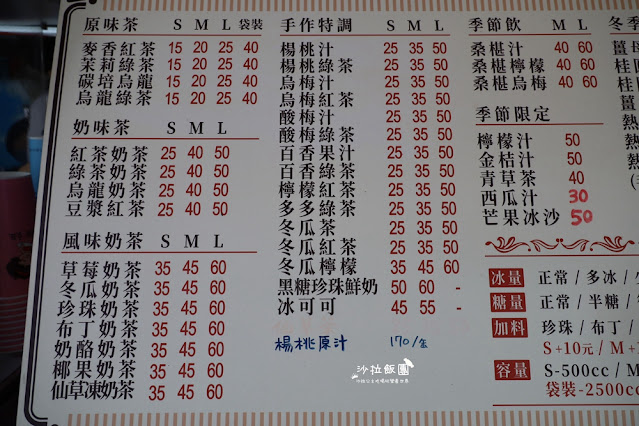 原味茶 S M L 袋裝
麥香紅茶 15 20 25 40
茉莉綠茶 15 20 25 40
碳培烏龍 15 20 25 40
烏龍綠茶 15 20 25 40
奶味茶 S M L
紅茶奶茶 25 40 50
綠茶奶茶 25 40 50
烏龍奶茶 25 40 50
豆漿紅茶 25 40 50
風味奶茶 S M L
草莓奶茶 35 45 60
冬瓜奶茶 35 45 60
珍珠奶茶 35 45 60
布丁奶茶 35 45 60
奶酪奶茶 35 45 60
椰果奶茶 35 45 60
仙草凍奶茶 35 45 60
手作特調 S M L
楊桃汁 25 35 50
楊桃綠茶 25 35 50
烏梅汁 25 35 50
烏梅紅茶 25 35 50
酸梅汁 25 35 50
酸梅綠茶 25 35 50
百香果汁 25 35 50
百香綠茶 25 35 50
檸檬紅茶 25 35 50
多多綠茶 25 35 50
冬瓜茶 25 35 50
冬瓜紅茶 25 35 50
冬瓜檸檬 35 45 60
黑糖珍珠鮮奶 50 60 -
冰可可 45 55 -
楊桃原汁 170/盒
沙拉飯團
季節飲 M L
桑椹汁 40 60
桑椹檸檬 40 60
桑椹烏梅 40 60
季節限定
檸檬汁 50
金桔汁 50
青草茶 40
西瓜汁 30
芒果冰沙 50
冰量 正常/多冰/
糖量 正常/半糖/
加料 珍珠/布丁/
S+10元/M+
容量 S-500cc/M
袋裝-2500cc
冬季
薑
桂
桂
薑
熱
熱
熱